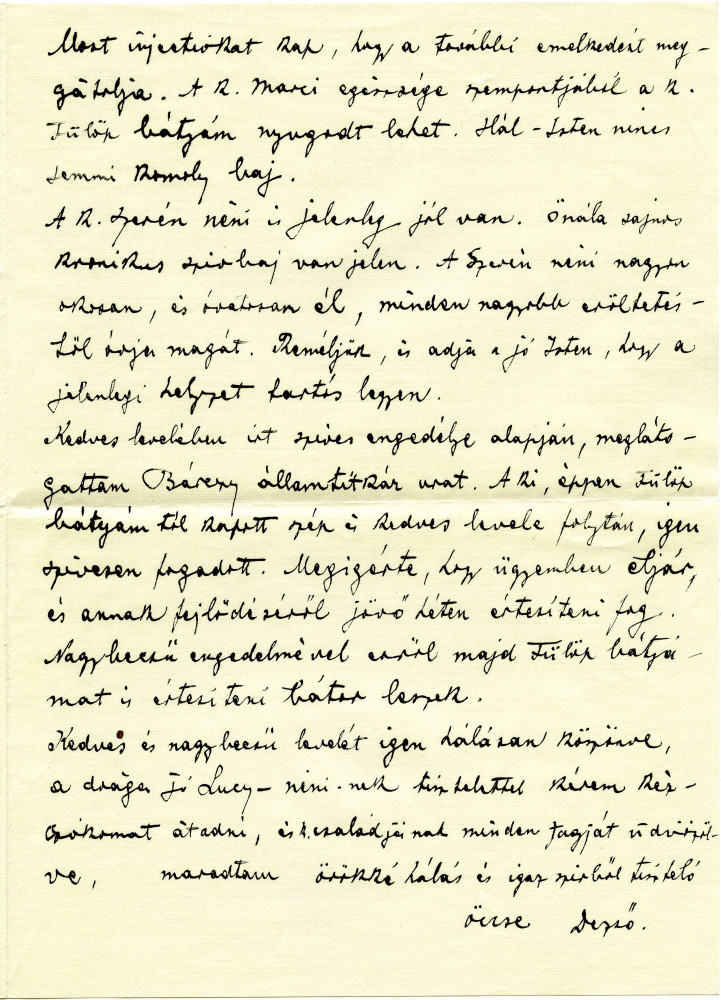 Most injectiókat kap, hogy a további emelkedést meg-
gátolja. A k. Marci egészsége szempontjából a k.
Fülöp bátyám nyugodt lehet. Hál-Isten nincs
semmi komoly baj.
A k. Szerén néni is jelenleg jól van. Önála sajnos
kronikus szivbaj van jelen. A Szerén néni nagyon
okosan, és óvatosan él, minden nagyobb erőltetés-
től óvja magát. Reméljük, és adja a jó Isten, hogy a
jelenlegi helyzet tartós legyen.
Kedves levelében irt szives engedélye alapján, megláto-
gattam Bárczy államtitkár urat. A ki, éppen Fülöp
bátyám tól kapott szép és kedves levele folytán, igen
szivesen fogadott. Megigérte, hogy ügyemben eljár,
és annak fejlődéséről jövő héten értesiteni fog.
Nagybecsü engedelmével erről majd Fülöp bátyá-
mat is értesiteni bátor leszek.
Kedves és nagybecsü levelét igen hálásan köszönve,
a drága jó Lucy-néni-nek tisztelettel kérem kéz-
csókomat átadni, és k. családjának minden tagját üdvözöl-
ve, maradtam örökké hálás és igaz szivből tisztelő
öccse Dezső.